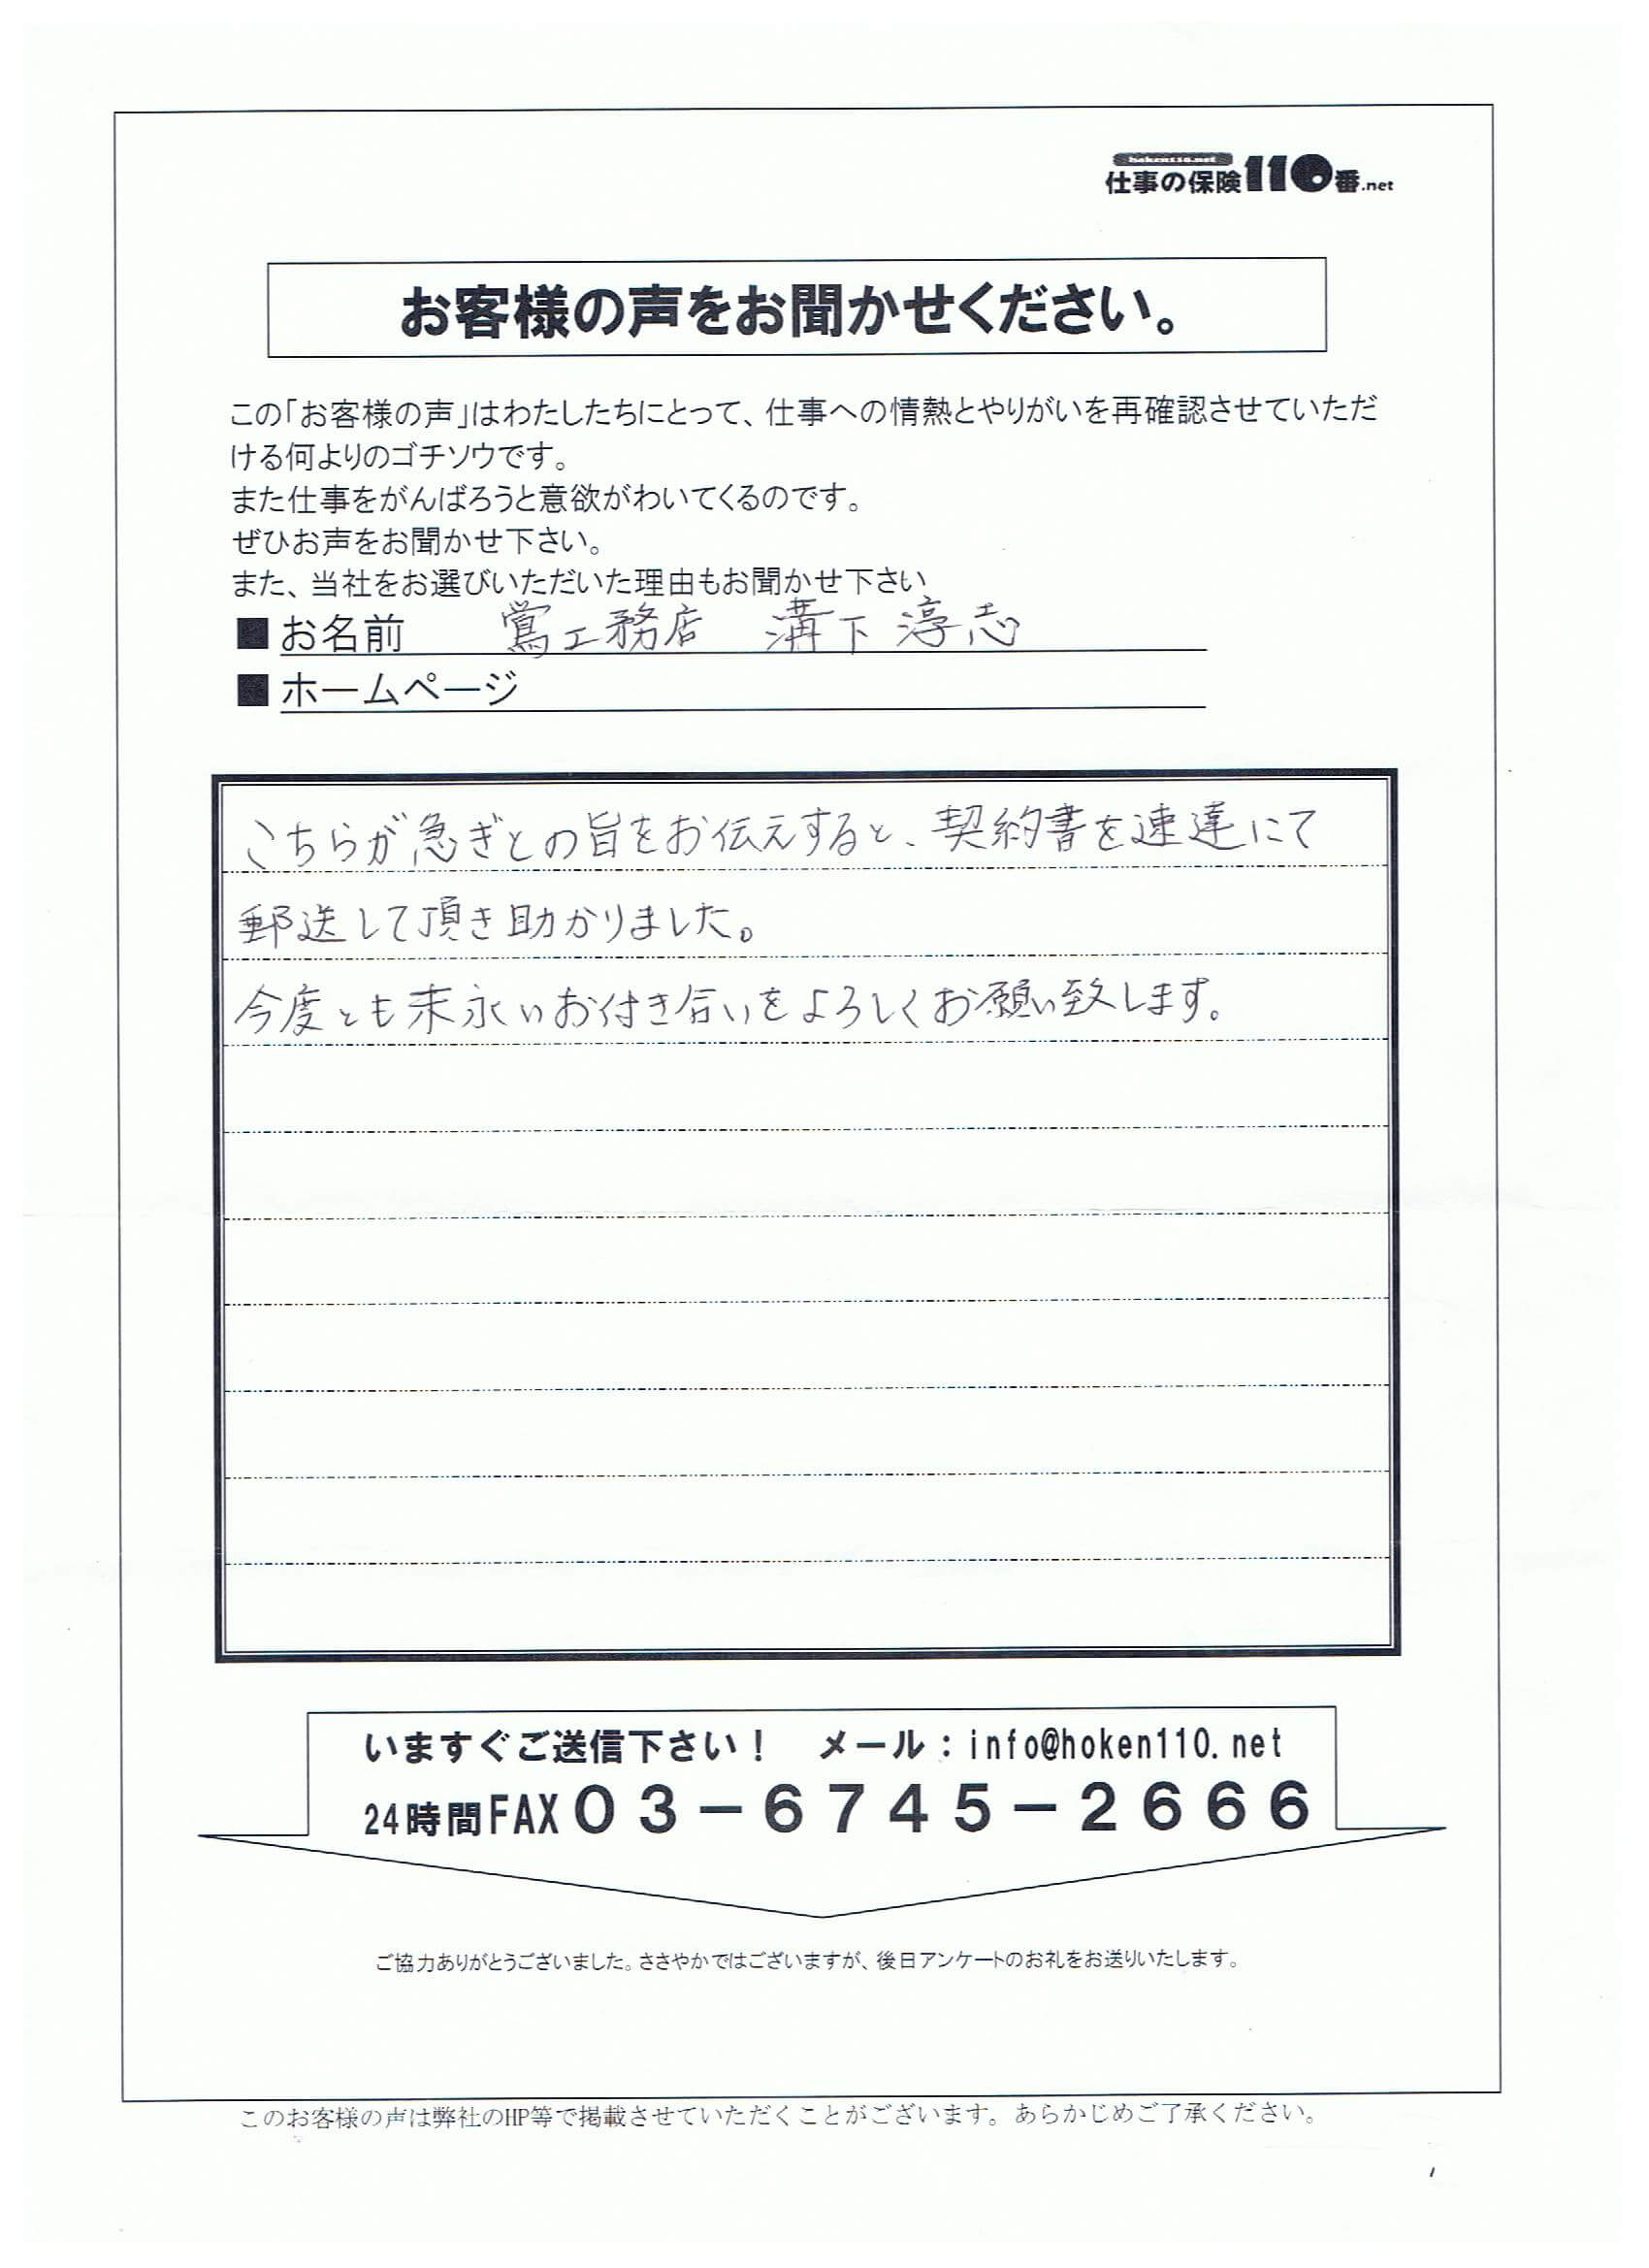 hoken110.net
仕事の保険110番.net
お客様の声をお聞かせください。
この「お客様の声」はわたしたちにとって、仕事への情熱とやりがいを再確認させていただ
ける何よりのゴチソウです。
また仕事をがんばろうと意欲がわいてくるのです。
ぜひお声をお聞かせ下さい。
また、当社をお選びいただいた理由もお聞かせ下さい
■お名前 鶯工務店 溝下 淳志
■ホームページ
こちらが急ぎとの旨をお伝えすると、契約書を速達にて
郵送して頂き助かりました。
今度とも末永いお付き合いをよろしくお願い致します。
いますぐご送信下さい！ メール：info@hoken110.net
24時間FAX０３－６７４５－２６６６
ご協力ありがとうございました。ささやかではございますが、後日アンケートのお礼をお送りいたします。
このお客様の声は弊社のHP等で掲載させていただくことがございます。あらかじめご了承ください。